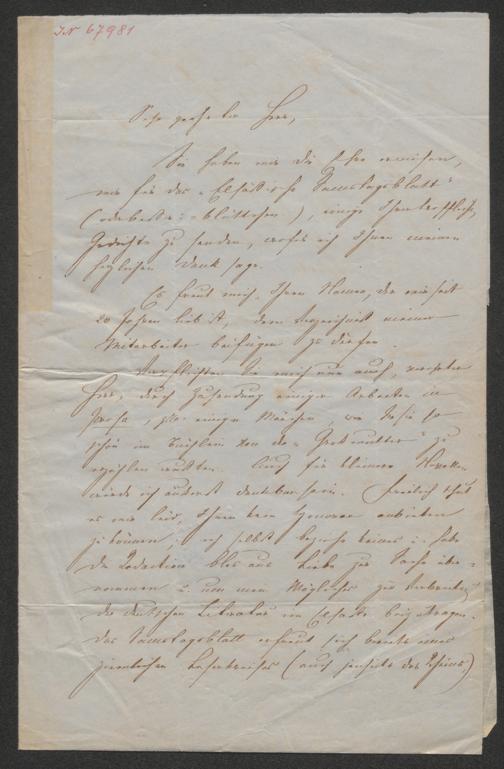 JN 67981
Sehr geehrter Herr,
Sie haben mir die Ehre erwiesen,
mir für das „Elsässische Samstagsblatt"
(oder besser: -blättchen), einige Ihrer trefflichen
Gedichte zu senden, wofür ich Ihnen meinen
herzlichen Dank sage.
Es freut mich, Ihren Namen, der mir seit
20 Jahren lieb ist, dem Verzeichniß meiner
Mitarbeiter beifügen zu dürfen.
Verpflichten Sie mich nun auch, verehrter
Herr, durch Zusendung einiger Arbeiten in
Prosa, einiger Märchen, wie Sie sie so
schön im Büchlein von der „Großmutter" zu
erzählen wußten. Auch für kleinere Novellen
würde ich äußerst dankbar sein. Freilich thut
es mir leid, Ihnen kein Honorar anbieten
zu können; ich selbst beziehe keines u. habe
die Redaction blos aus Liebe zur Sache über-
nommen u. um mein Mögliches zur Verbreitung
der deutschen Literatur im Elsasse beizutragen.
Das Samstagsblatt erfreut sich bereits eines
ziemlichen Leserkreises (auch jenseits des Rheins)